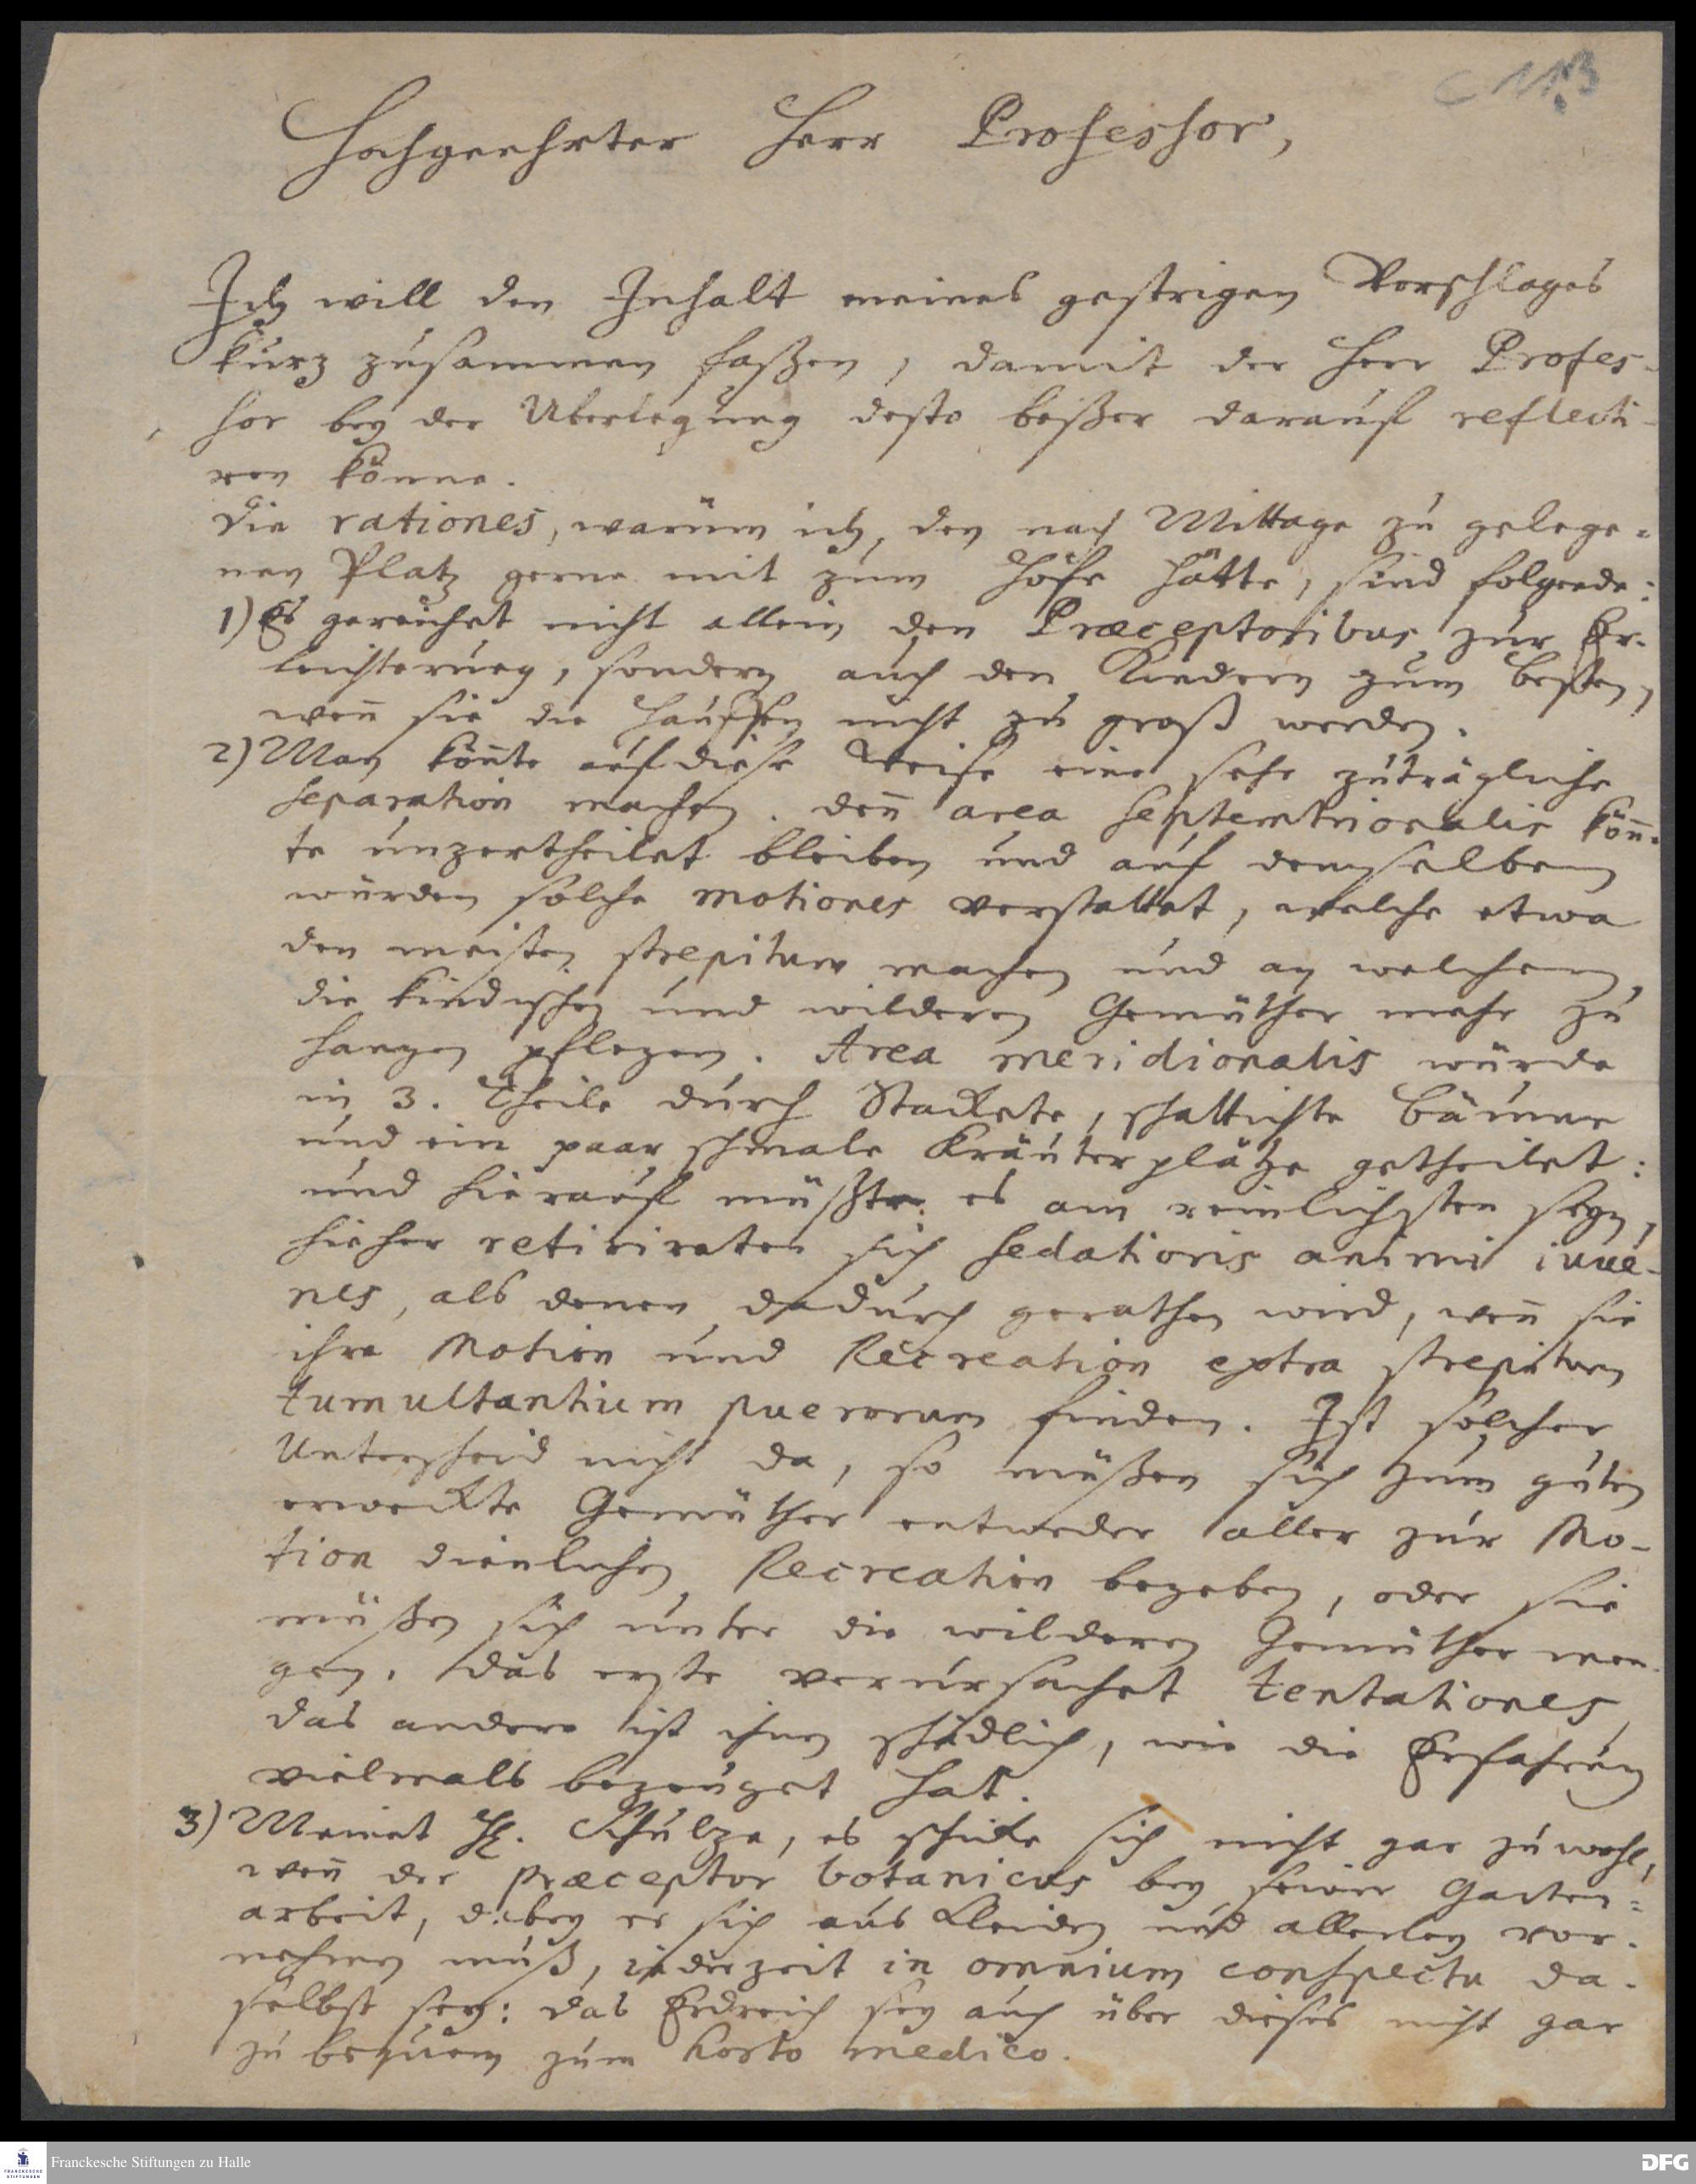 C 11:3
Hochgeehrter Herr Professor,
Ich will den Inhalt meines gestrigen Vorschlages
kurz zusammen faßen, damit der Herr Profes-
sor bey der Uberlegung desto beßer darauf reflecti-
ren könne.
Die rationes, warum ich, den nach Mittage zu gelege-
nen Platz gerne mit zum Hofe hätte, sind folgende:
1) Es gereichet nicht allein den Præceptoribus zur Er-
leichterung, sondern auch den Kindern zum besten,
wen̄ sie die Hauffen nicht zu groß werden.
2) Man kön̄te auf diese Weise eine sehr zuträgliche
separation machen. Den̄ area septemtrionalis kön̄-
te unzertheilet bleiben und auf demselben
würden solche motiones verstattet, welche etwa
den meisten strepitum machen und an welchem
die kindischen und wilderen Gemüther mehr zu
hangen pflegen. Area meridionalis würde
in 3. Theile durch Stackete, schattichte Bäume
und ein paar schmale Kräuterplätze getheilet:
und hierauf müßte es am reinlichsten seyn,
hieher retirireten sich sedationis animi iuve-
nes, als denen dadurch gerathen wird, wen̄ sie
ihre Motion und Recreation extra strepitum
tumultantium puerorum finden. Ist solcher
Unterscheid nicht da, so müßen sich zum guten
erweckte Gemüther entweder aller zur Mo-
tion dienlichen Recreation begeben, oder sie
müßen sich unter die wilderen Gemüther men-
gen. Das erste verursachet tentationes,
das andere ist ihnen schädlich, wie die Erfahrung
vielmals bezeuget hat.
3) Meinet H. Schulze, es schicke sich nicht gar zu wohl,
wen̄ der præceptor botanicus bey seiner Garten-
arbeit, dabey er sich aus Kleiden und allerley vor-
nehmen muß, iederzeit in omnium conspectu da-
selbst sey: das Erdreich sey auch über dieses nicht gar
zu bequem zum horto medico.
FRANCKESCHE STIFTUNGEN
Franckesche Stiftungen zu Halle
DFG